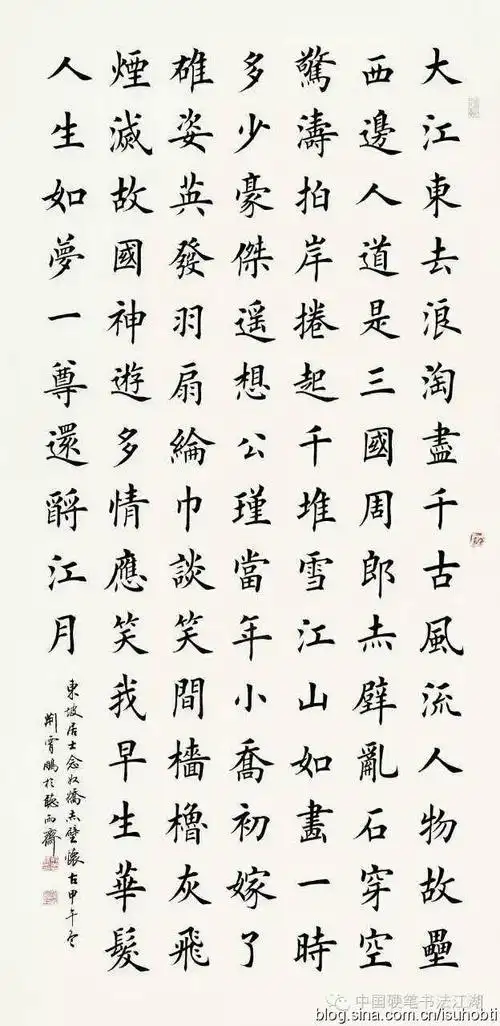 大江東去浪淘盡千古風流人物故壘
西邊人道是三國周郎赤壁亂石穿空
驚濤拍岸捲起千堆雪江山如畫一時
多少豪傑遥想公瑾當年小喬初嫁了
雄姿英發羽扇綸巾談笑間檣櫓灰飛
煙滅故國神遊多情應笑我早生華髮
人生如夢一尊還酹江月
東坡居士念奴嬌赤壁懷古甲午冬
荆霄鵬於聽雨齋
中国硬笔书法江湖
blog.sina.com.cn/isuhobti